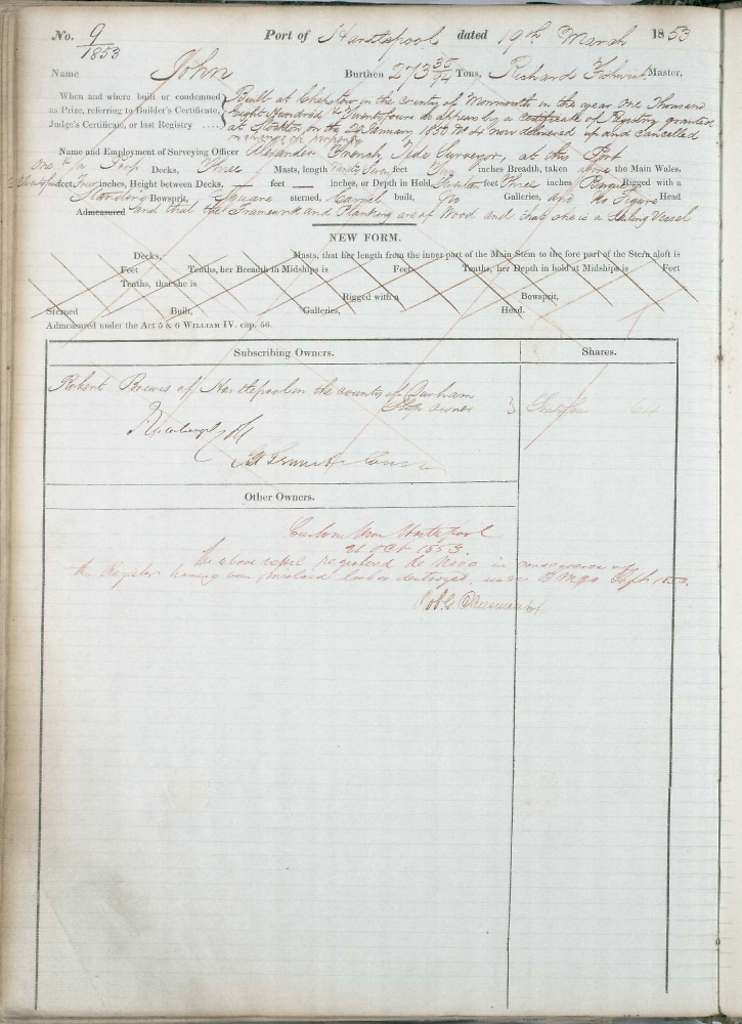 No. 9/1853 Port of Hartlepool dated 19th March 1853
Name John Burthen 273 35/94 Tons, Richard Master,
When and where built or condemned as Prize, referring to Builder's Certificate, Judge's Certificate, or last Registry ....
Built at Chepstow in the County of Monmouth in the year One Thousand
Eight Hundred & Twentyfour as appears by a Certificate of Registry granted
at Stockton on the January No now delivered up and cancelled
on change of property
Name and Employment of Surveying Officer Alexander French, Tide Surveyor, at this Port
One & a Decks, Three Masts, length Ninety Seven feet inches Breadth, taken above the Main Wales,
feet, Four inches, Height between Decks, — feet — inches, or Depth in Hold feet Three inches Rigged with a
Standing Bowsprit, Square sterned, Carvel built, No Galleries, and No Figure Head
Admeasured and that the Framework and Planking are of Wood and that she is a Sailing Vessel
NEW FORM.
Decks, Masts, that her length from the inner part of the Main Stem to the fore part of the Stern aloft is
Feet Tenths, her Breadth in Midships is Feet Tenths, her Depth in hold at Midships is Feet
Tenths, that she is Rigged with a Bowsprit,
Sterned Built, Galleries, Head.
Admeasured under the Act 5 & 6 WILLIAM IV. cap. 56.
Subscribing Owners. Shares.
Robert of Hartlepool in the County of Durham
Ship Owner } 64
Other Owners.
Custom Hartlepool
21 Oct 1853.
The above vessel registered de Novo in consequence of
the Register having been destroyed,